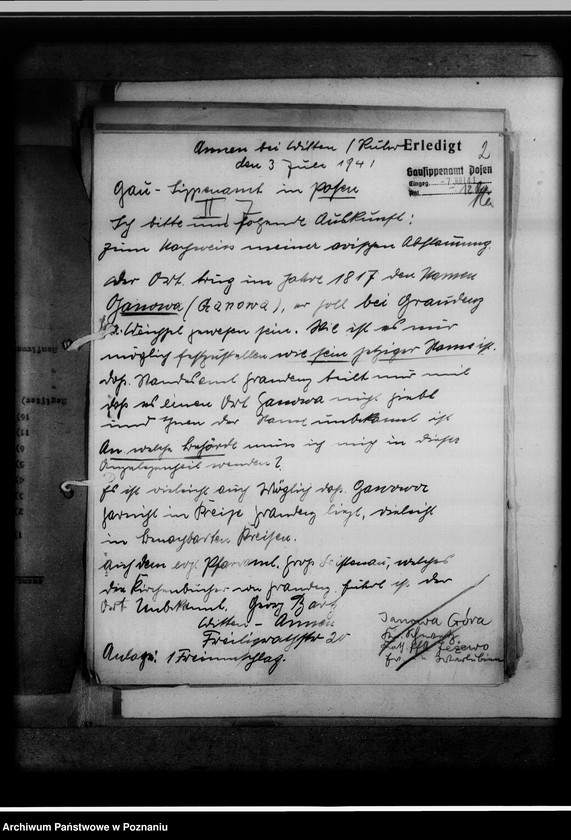 Annen bei Witten / Ruhr
Erledigt
2
den 3 Juli 1941
Gausippenamt Posen
Eingeg.
Gau-Sippenamt in Posen
Ich bitte um folgende Auskunft:
zum Nachweis meiner arischen Abstammung
Der Ort trug im Jahre 1817 den Namen
Ganowa (Czanowa), er soll bei Graudenz
a. Weichsel gewesen sein. Wie ist es mir
möglich festzustellen wie sein jetziger Name ist.
das Standesamt Graudenz teilt mir mit
das es einen Ort Ganowa nicht giebt
und Ihnen der Name unbekannt ist
An welche Behörde muss ich mich in dieser
Angelegenheit wenden?
Es ist vieleicht auch Möglich das Ganowa
garnicht im Kreise Graudenz liegt, vieleicht
in benachbarten Kreisen.
Auch dem evgl Pfarramt, welches
die Kirchenbücher von Graudenz führt ist der
Ort Unbekannt. Georg
Witten-Annen
Freiligrathstr 20
Anlage: 1 Freiumschlag.
Janowa Góra
Kr. Schwetz
Kath. Pfa Jeżewo
Archiwum Państwowe w Poznaniu